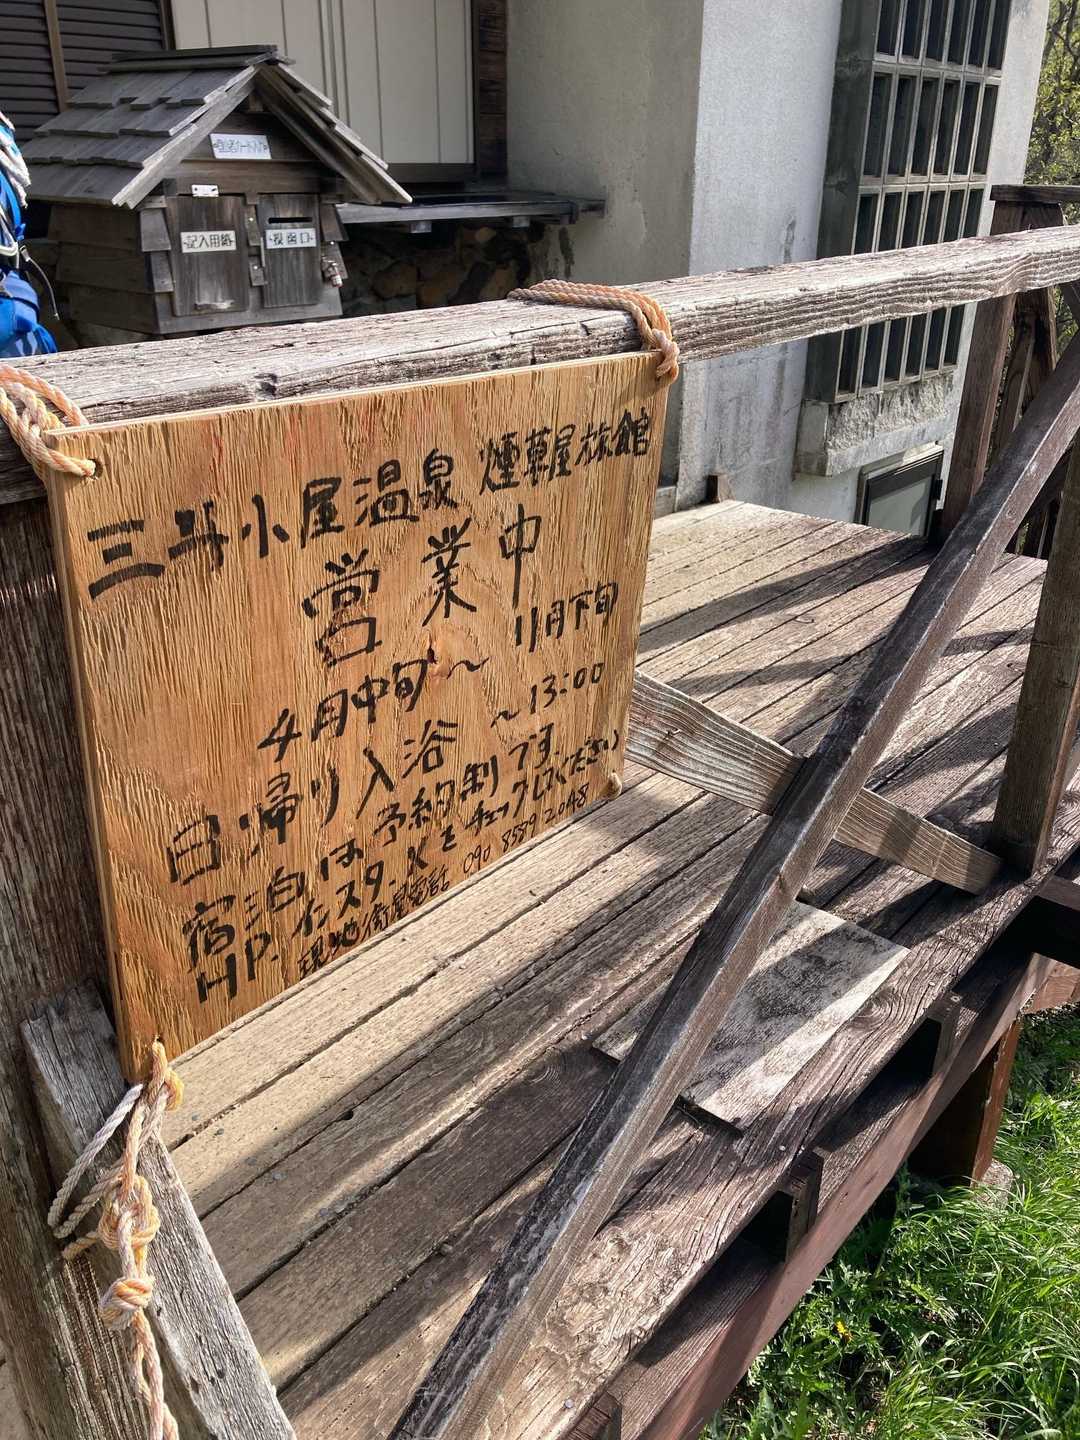 登山者カード入れ
記入用紙
投函口
三斗小屋温泉 煙草屋旅館
営業中
4月中旬〜11月下旬
日帰り入浴 〜13:00
宿泊は予約制です.
HP.インスタ.Xをチェックしてください
現地衛星電話 090 8589 2048